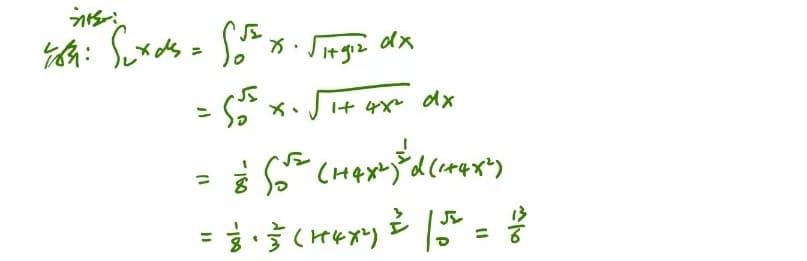 答案: ∫_L x ds = ∫_0^{√2} x · √(1+y'^2) dx
= ∫_0^{√2} x · √(1+4x^2) dx
= 1/8 ∫_0^{√2} (1+4x^2)^{1/2} d(1+4x^2)
= 1/8 · 2/3 (1+4x^2)^{3/2} |_0^{√2} = 13/6